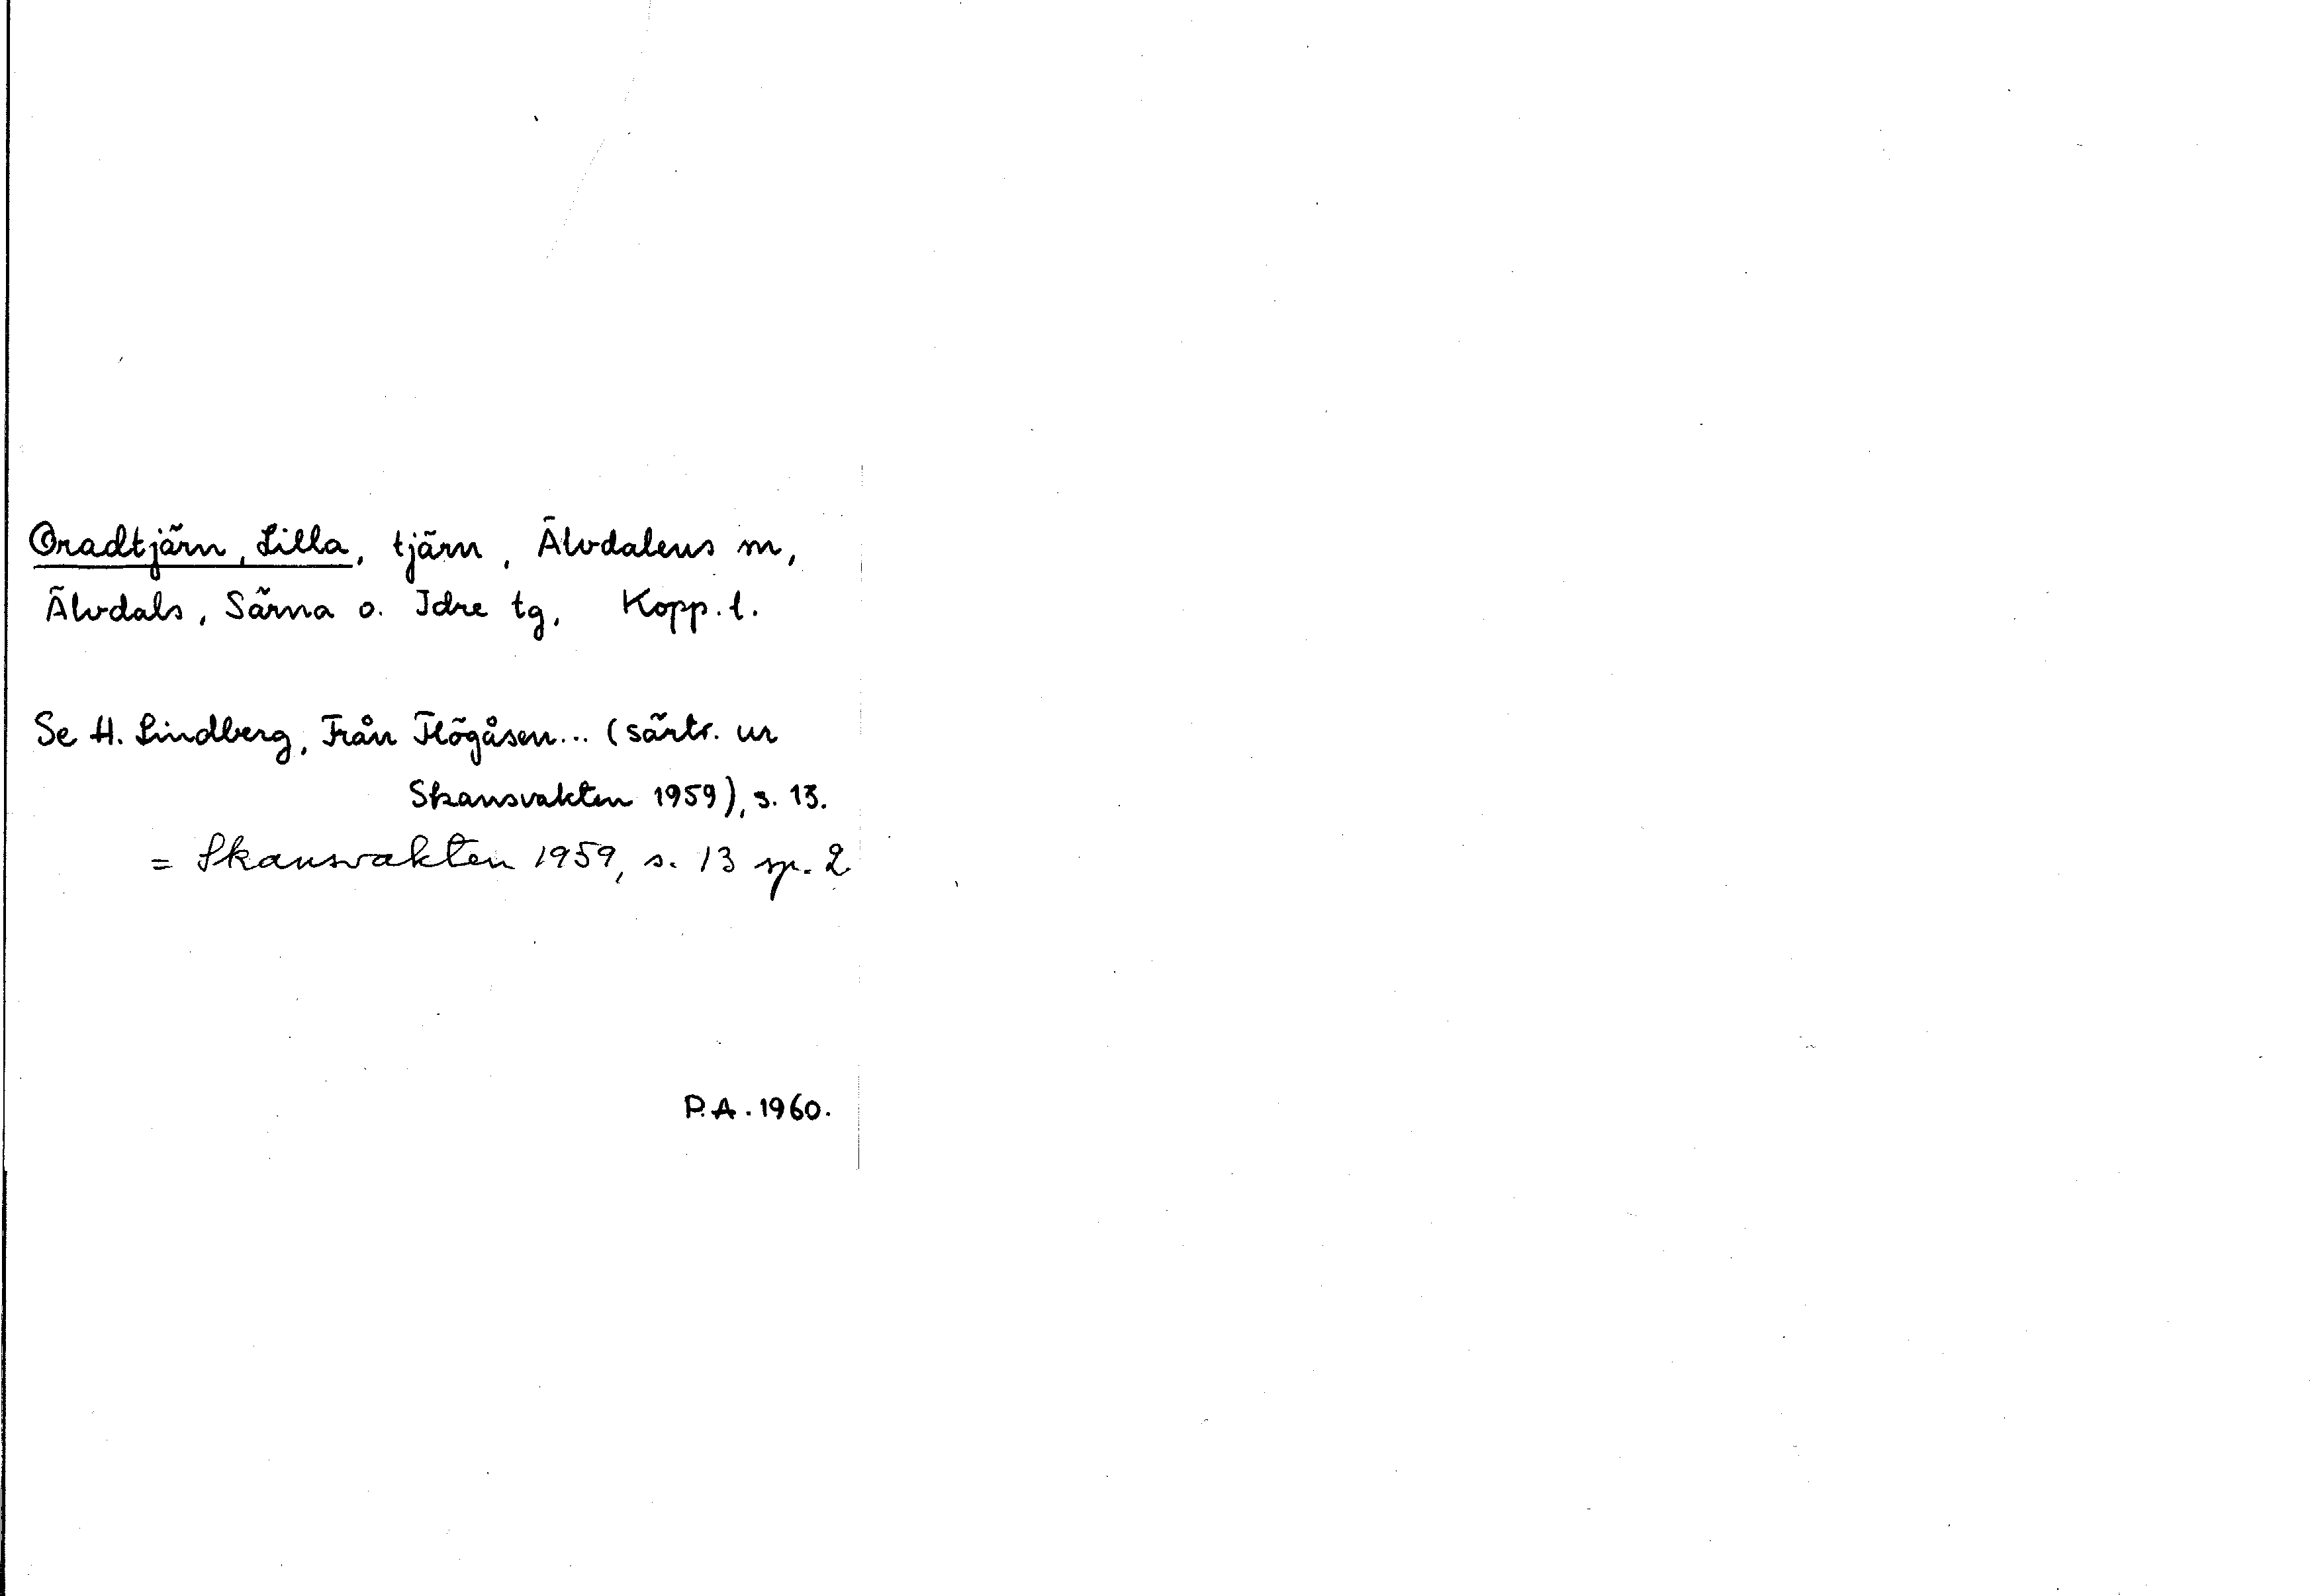 Oradtjärn, Lilla, tjärn, Älvdalens m,
Älvdals, Särna o. Idre tg, Kopp. l.
Se H. Lindberg, Från Högåsen... (särtr. ur
Skansvakten 1959), s. 13.
= Skansvakten 1959, s. 13 sp. 2
P.A. 1960.